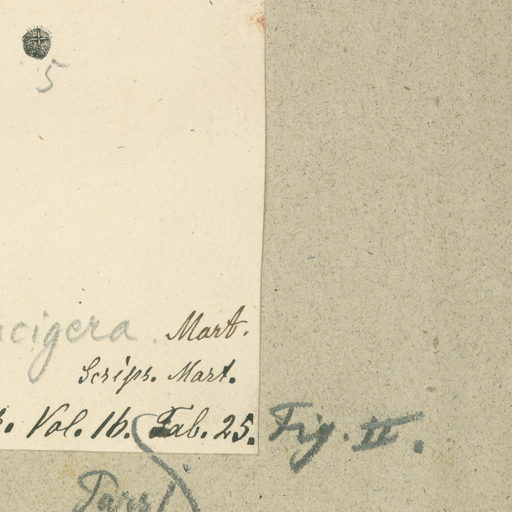 5
cigera. Mart.
Scrips. Mart.
Vol. 16. Tab. 25. Fig. II.